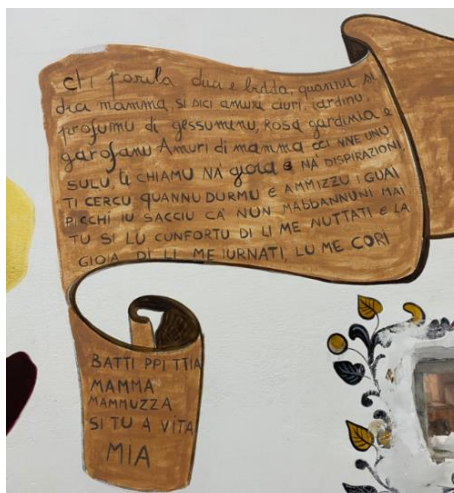 chi parila duci e bedda, quannu si
dici mamma, si dici amuri ciuri iardinu.
profumu di gessuminu, rosa gardinia e
garofanu Amuri di mamma cci nne unu
sulu ti CHIAMU NA' gioia e NA' DISPIRAZIONI
TI CERCU QUANNU DURMU e AMMIZZU I GUAI
PICCHÌ IU SACCIU CA' NUN MABBANNUNI MAI
TU SI LU CUNFORTU DI LI ME NUTTATI e LA
GIOIA DI LI ME IURNATI, LU ME CORI
BATTI PPI TTIA
MAMMA
MAMMUZZA
SI TU A VITA
MIA